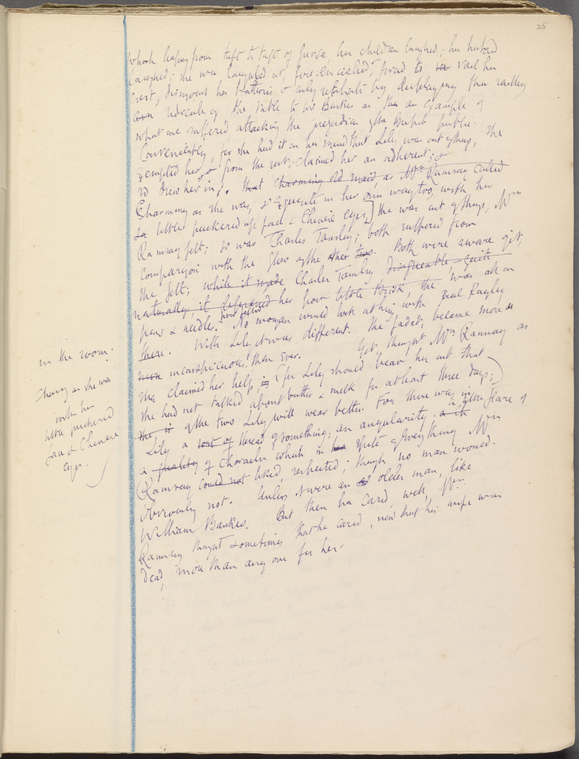 25
which leaping from tuft to tuft of furze, her children laughed; her husband
laughed; she was laughed at, fire-encircled, forced to veil her
crest, dismount her batteries & only retaliate by displaying the raillery
& ridicule of the table to Mr Bankes as an example of
what one suffered attacking the prejudices of the British public.
Conveniently, for she had it on her mind that Lily was out of things, she
exempted her from the rest; claimed her an adherent; &
so drew her in; that charming old maid, as Mrs Ramsay called
Charming as she was, & exquisite in her own way too, with her
little puckered up face & Chinese eyes] she was out of things, Mrs
Ramsay felt; so was Charles Tansley; both suffered from
comparison with the glow of the other two. Both were aware of it,
she felt; while it made Charles Tansley disagreeable - quite
naturally, it
pew & needle. No woman would look at him with Paul Rayley
there. With Lily it was different. She faded, became more
inconspicuous than ever. Yet, thought Mrs Ramsay as
she claimed her help, (for Lily should bear her out that
she had not talked about butter & milk for at least three days;)
of the two Lily will wear better. For there was in
Lily a thread of something; an angularity; a little flare of
a of character which in spite of everything Mrs
Ramsay liked, respected; though no man would.
Obviously not. Unless it were an older man, like
William Bankes. But then he cared, well, Mrs
Ramsay thought sometimes that he cared, now that his wife was
dead, more than any one for her.
in the room.
Charming as she was
with her
little puckered
face & Chinese
eyes.